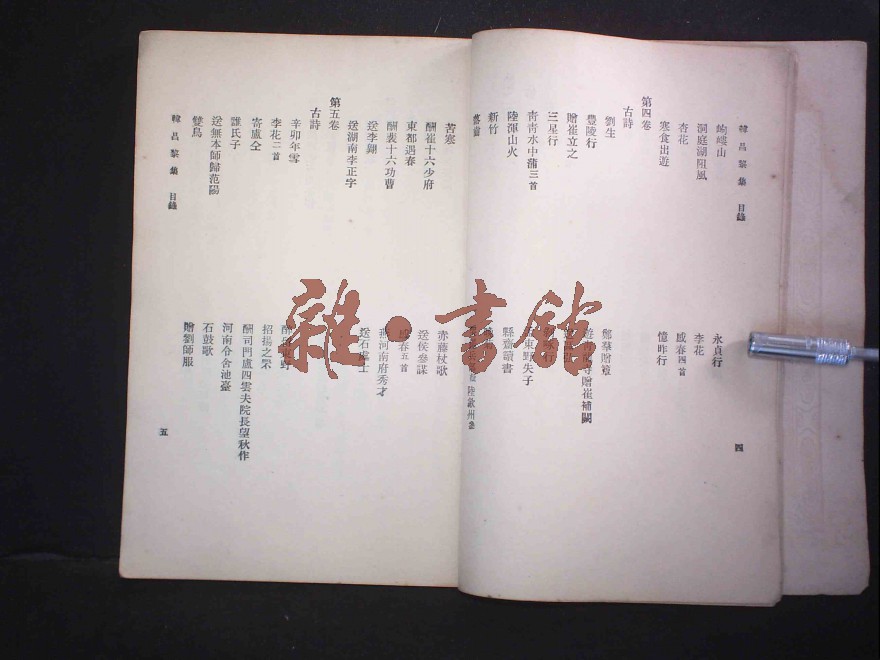 韓昌黎集 目錄
岣嶁山
永貞行
洞庭湖阻風
李花
杏花
感春四首
寒食出遊
憶昨行
第四卷
古詩
劉生
鄭羣贈簟
豐陵行
贈崔補闕
贈崔立之
三星行
青青水中蒲三首
東野失子
陸渾山火
縣齋讀書
新竹
落齒
陸歙州參
苦寒
赤藤杖歌
酬崔十六少府
送侯參謀
東都遇春
感春五首
酬裴十六功曹
燕河南府秀才
送李翱
送石處士
送湖南李正字
第五卷
古詩
辛卯年雪
李花二首
招揚之罘
寄盧仝
酬司門盧四雲夫院長望秋作
誰氏子
河南令舍池臺
送無本師歸范陽
石鼓歌
雙鳥
贈劉師服
韓昌黎集 目錄
四
五
雜·書館